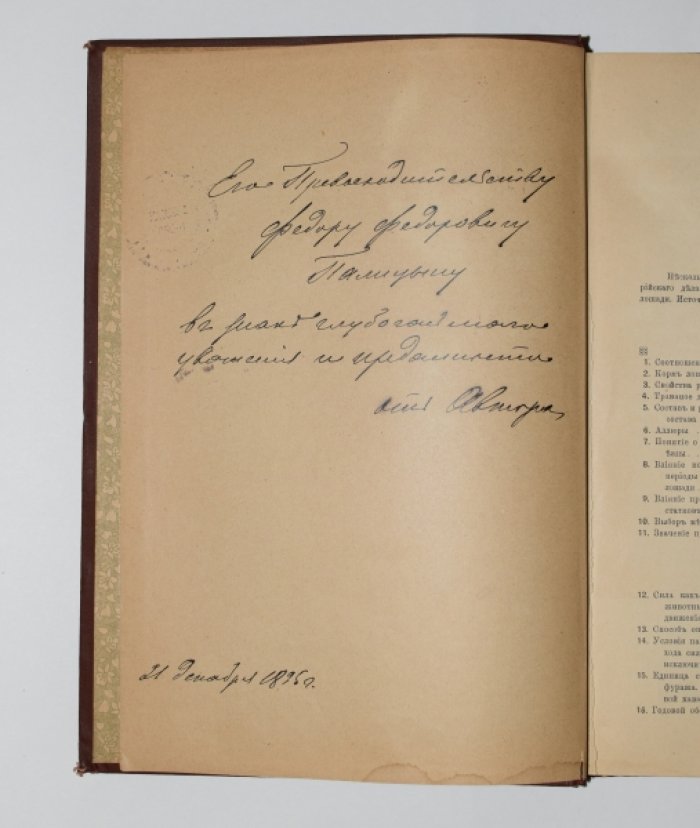 Его Превосходительству
Федору Федоровичу
Палицыну
въ знакъ глубочайшаго
уваженія и преданности
отъ Автора
21 декабря 1895 г.
Нѣсколь
рійскаго дѣла
лошади. Источ
1. Соотношен
2. Кормъ лош
3. Свойства р
4. Травяное д
5. Составъ и р
состава
6. Аллюры
7. Понятіе о
8. Вліяніе
періоды
лошади
9. Вліяніе пр
10. Выборъ мѣ
11. Значеніе п
12. Сила какъ
животны
движеніе
13. Способъ оп
14. Условія па
хода сил
исключи
15. Единица с
фуража.
вой
16. Годовой об